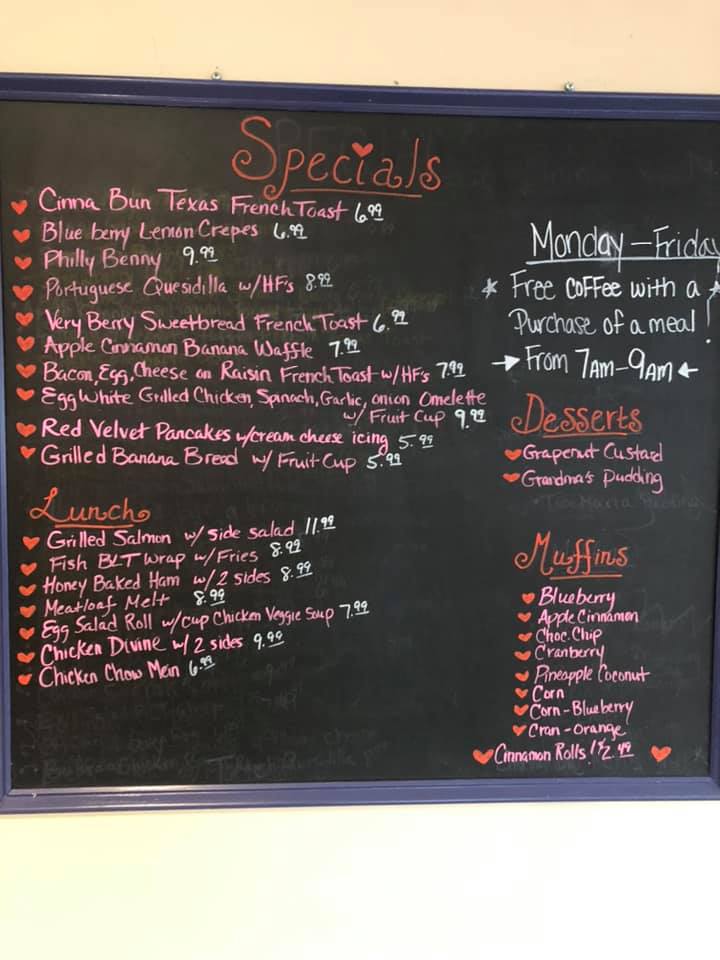 Specials
Cinna Bun Texas French Toast 6.99
Blue berry Lemon Crepes 6.99
Philly Benny 9.99
Portuguese Quesidilla w/HF's 8.99
Very Berry Sweetbread French Toast 6.99
Apple Cinnamon Banana Waffle 7.99
Bacon, Egg, Cheese on Raisin French Toast w/HF's 7.99
Egg White Grilled Chicken, Spinach, Garlic, onion Omelette
w/ Fruit Cup 9.99
Red Velvet Pancakes w/cream cheese icing 5.99
Grilled Banana Bread w/ Fruit Cup 5.99
Lunch
Grilled Salmon w/ side salad 11.99
Fish BLT Wrap w/ Fries 8.99
Honey Baked Ham w/ 2 sides 8.99
Meatloaf Melt 8.99
Egg Salad Roll w/cup Chicken Veggie Soup 7.99
Chicken Divine w/ 2 sides 9.99
Chicken Chow Mein 6.99
Monday-Friday
* Free COFFEE with a *
Purchase of a meal!
→ From 7AM-9AM ←
Desserts
Grapenut Custard
Grandma's Pudding
Muffins
Blueberry
Apple Cinnamon
Choc. Chip
Cranberry
Pineapple Coconut
Corn
Corn-Blueberry
Cran-Orange
Cinnamon Rolls! $2.49